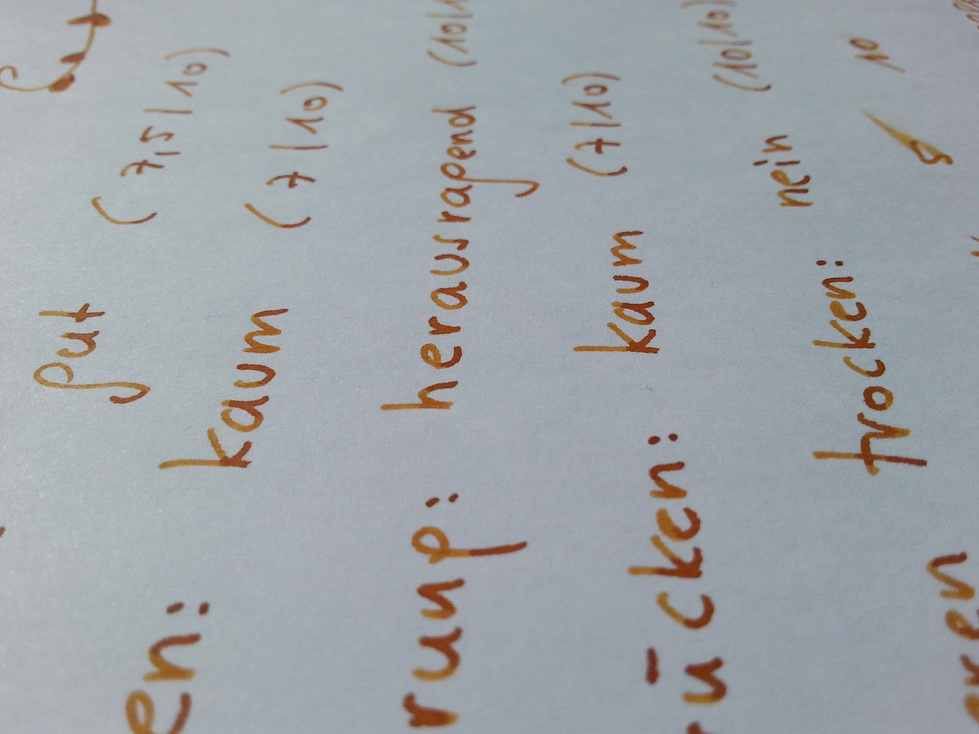 gut (7,5/10)
en: kaum (7/10)
rung: herausragend (10/1
ücken: kaum (7/10)
trocken: nein (10/10)
en 10